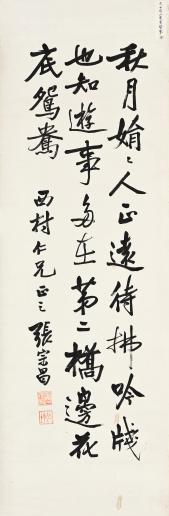 秋月娟娟人正遠待拂吟牋
也知遊事多在第二橋邊花
底鴛鴦
西村仁兄正之
張宗昌